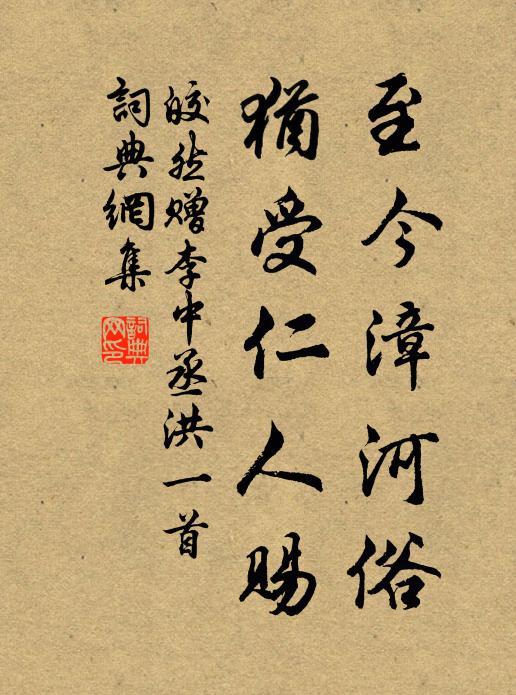 至今漳河俗
猶受仁人賜
皎然贈李中丞洪一首
詞典網集
詞典網印